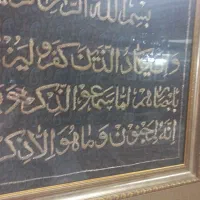 بسم الله الر
وان يكاد الذين كفروا ليز
بابصارهم لما سمعوا الذكر و
انه لمجنون وما هو الا ذكر